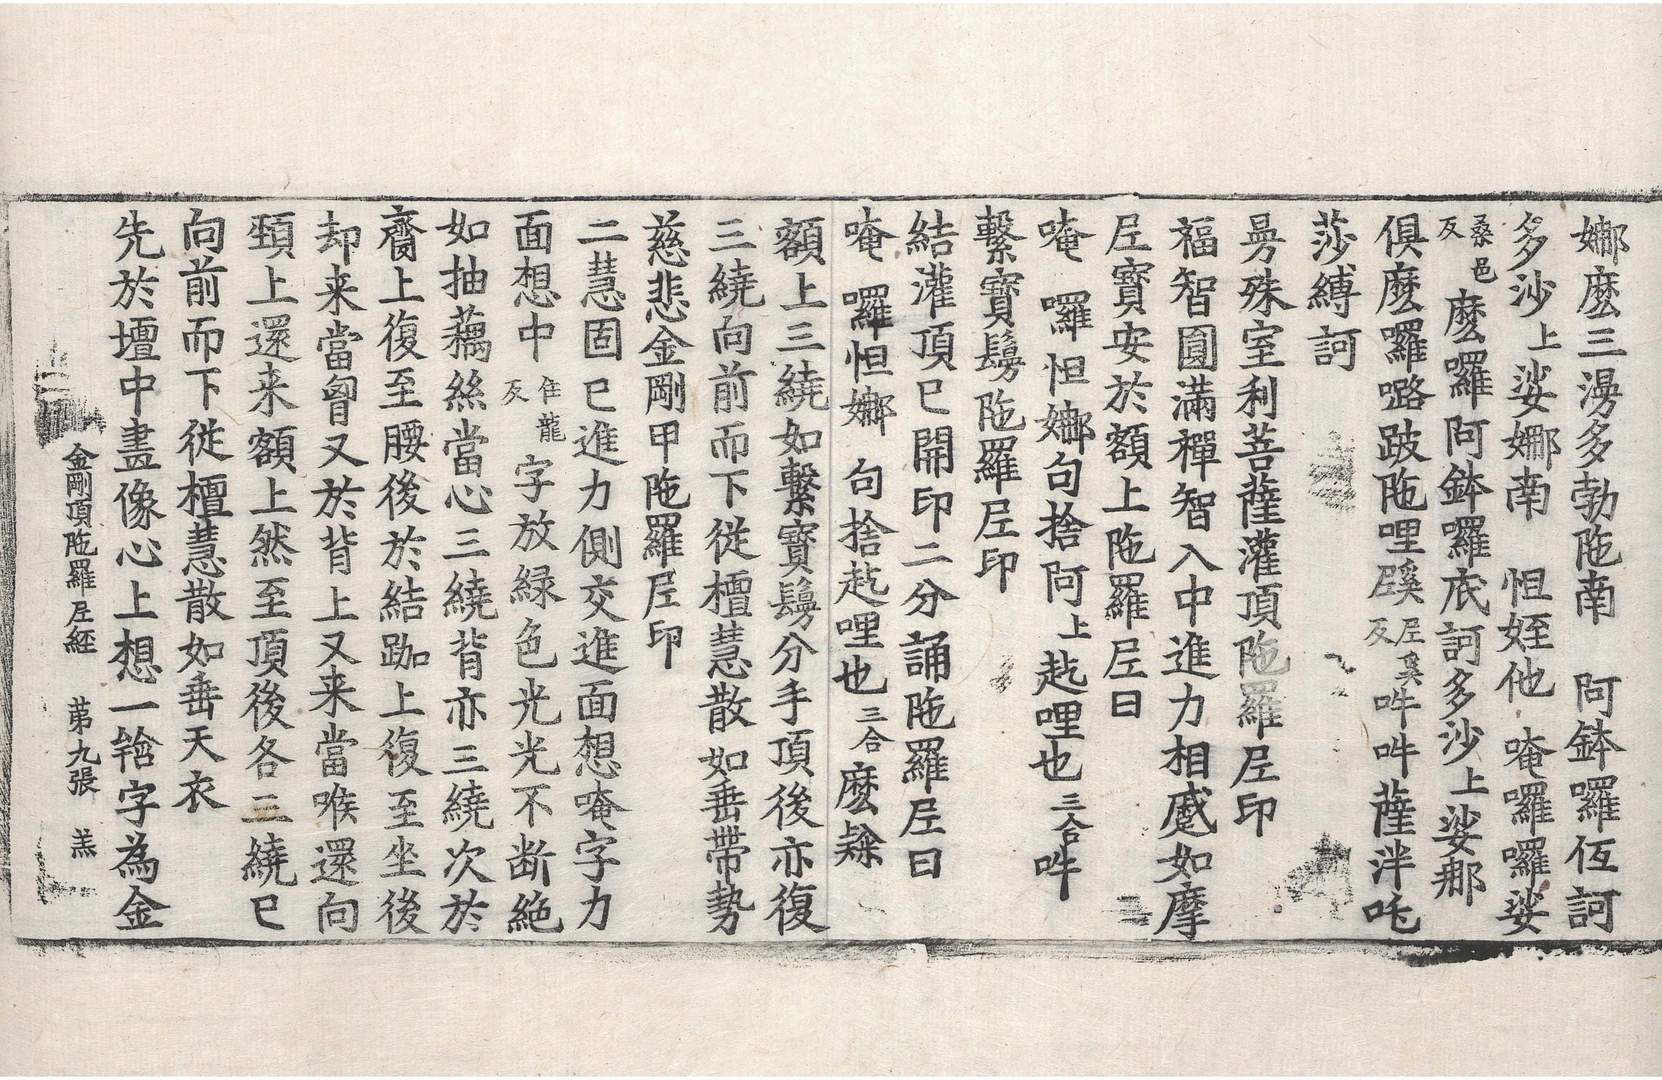 娜麽三湯多勃陁南　阿鉢囉伍訶
多沙上娑娜南　怛姪他　唵囉囉娑
桑邑反　麽囉阿鉢囉底訶多沙上娑那
俱麽囉嚕跛陁哩㞕尼奚反吽吽薩泮吒
莎縛訶
曼殊室利菩薩灌頂陁羅尼印
福智圓滿禪智入中進力相蹙如摩
尼寶安於額上陁羅尼曰
唵　囉怛娜句捨阿上訖哩也三合吽
繫寶鬘陁羅尼印
結灌頂已開印二分誦陁羅尼曰
唵　囉怛娜　句捨訖哩也三合麽
額上三繞如繫寶鬘分手頂後亦復
三繞向前而下從檀慧散如垂帶勢
慈悲金剛甲陁羅尼印
二慧固已進力側交進面想唵字力
面想中隹龍反字放緑色光光不断絶
如抽藕絲當心三繞背亦三繞次於
齎上復至腰後於結跏上復至坐後
却来當胷又於背上又来當喉還向
頸上還来額上然至頂後各三繞已
向前而下從檀慧散如垂天衣
先於壇中畫像心上想一字為金
金剛頂陁羅尼經　苐九張　羔